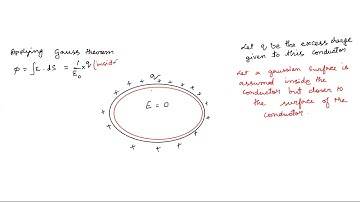 Applying Gauss theorem
φ = ∫E.ds = 1/ε₀ × q (insid
E = 0
Let q be the excess charge
given to this conductor
Let a gaussian surface is
assumed inside the
conductor but closer to
the surface of the
conductor.